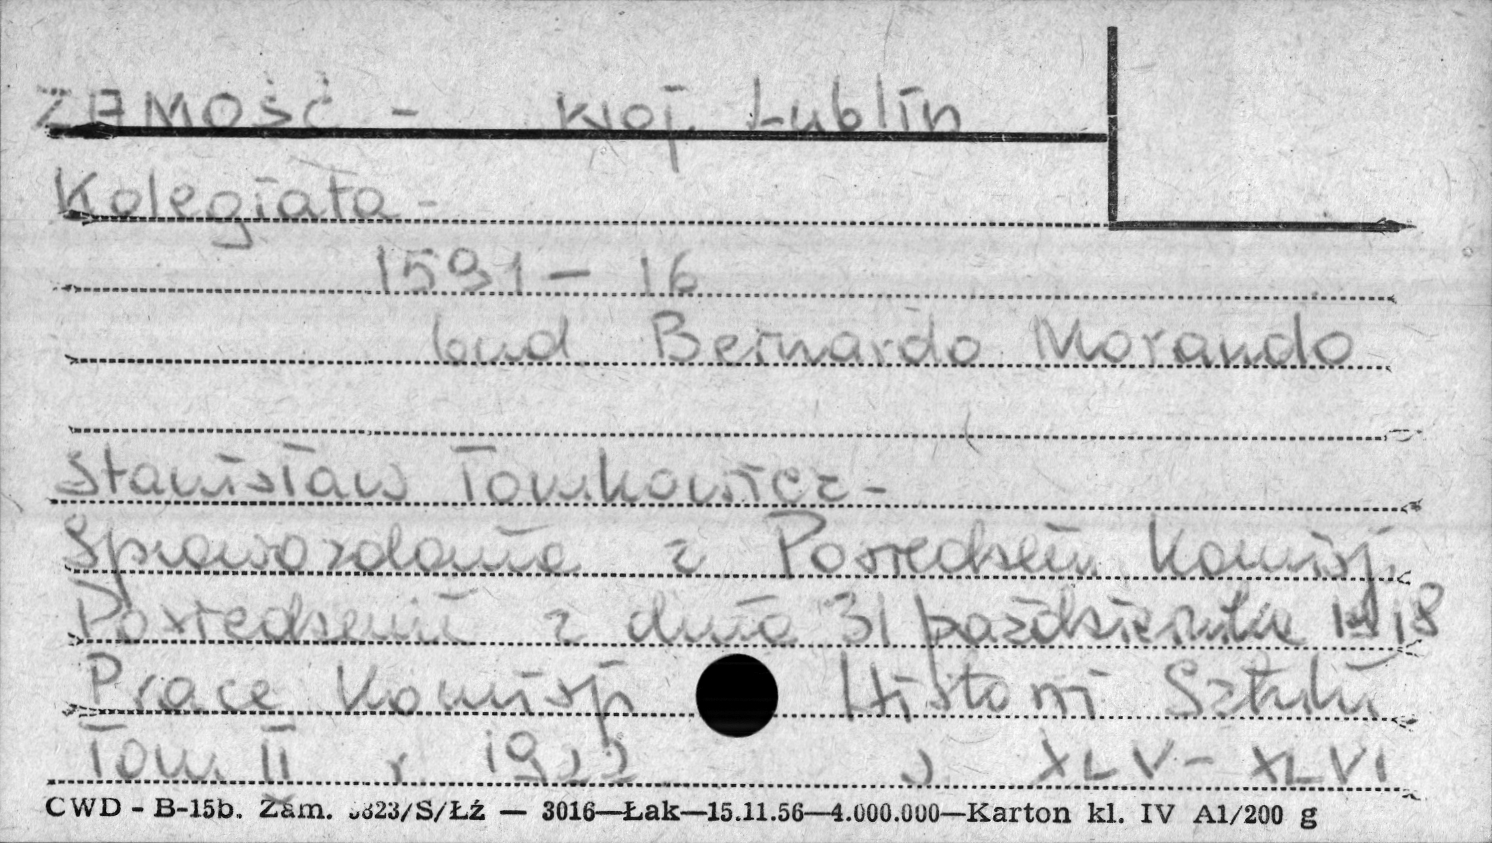 ZAMOŚĆ - woj. Lublin
Kolegiata -
1591 - 16
bud Bernardo Morando
Stanisław Tomkowicz -
Sprawozdania z Posiedzeń Komisj.
Posiedzenie z dnia 31 października 1918
Prace Komisji Historii Sztuki
Tom II r. 1922 s. XLV - XLVI
CWD - B-15b. Zam. 3823/S/ŁŻ — 3016—Łak—15.11.56—4.000.000—Karton kl. IV A1/200 g